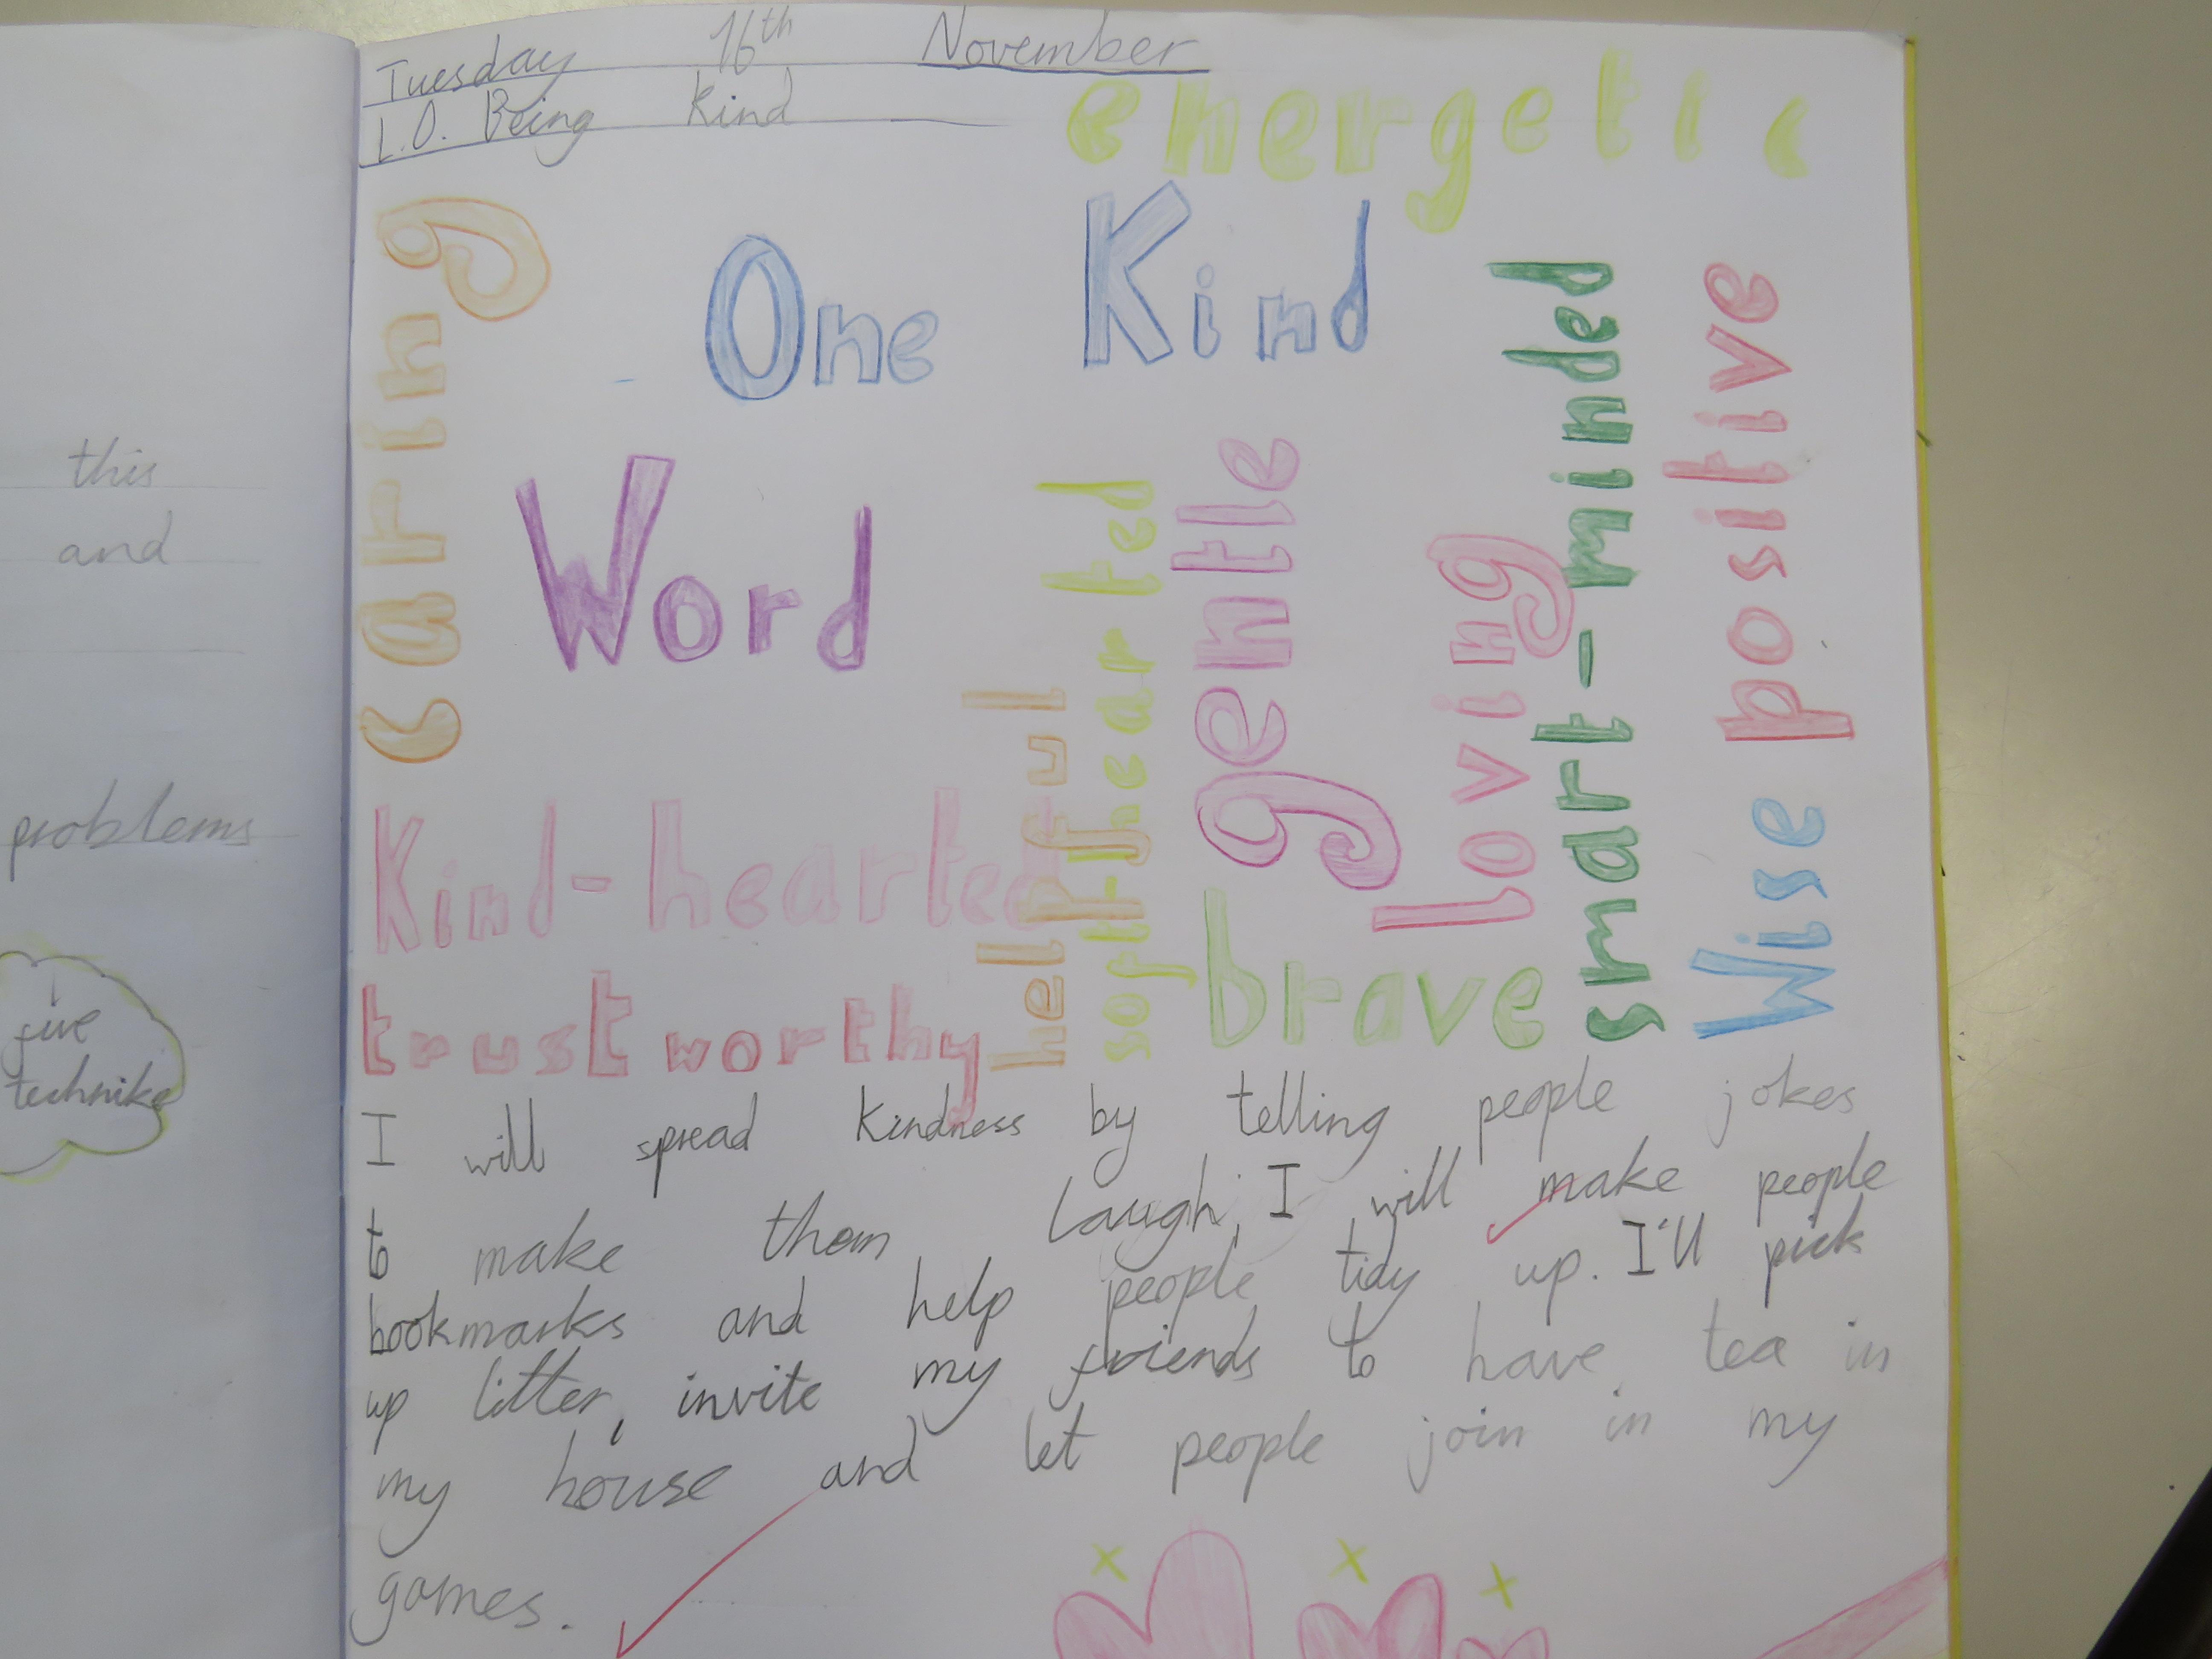 this
and
problems
five
technike
Tuesday 16th November
L.O. Being Kind
energetic
caring
One Kind
Word
Kind-hearted
trustworthy
helpful
soft-hearted
gentle
brave
loving
smart-minded
positive
Wise
I will spread kindness by telling people jokes
to make them laugh, I will make people
bookmarks and help people tidy up. I'll pick
up litter, invite my friends to have tea in
my house and let people join in my
games.